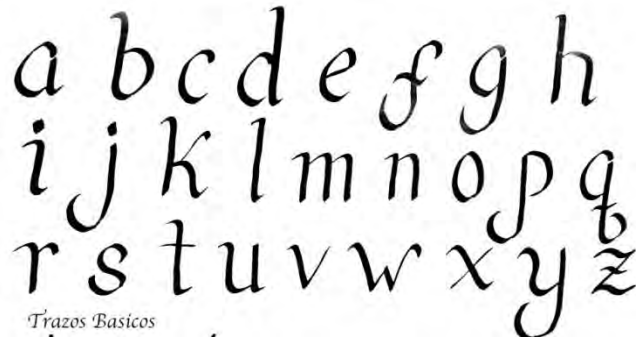 a b c d e f g h
i j k l m n o p q
r s t u v w x y z
Trazos Basicos